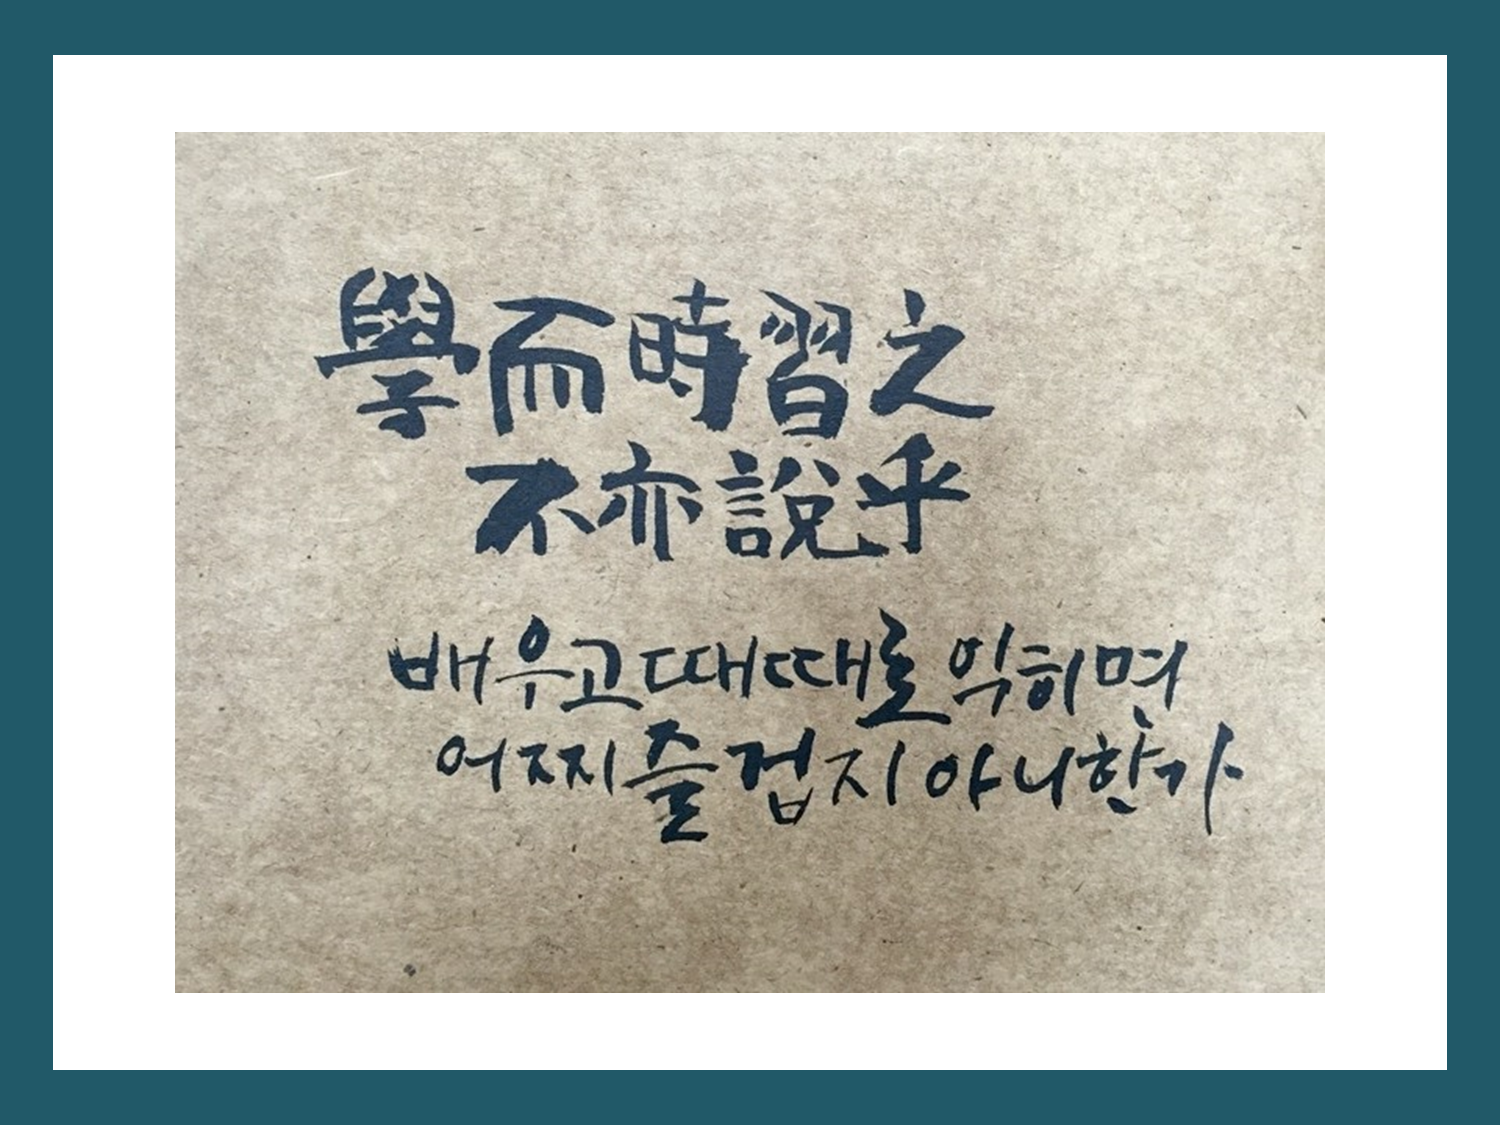 學而時習之
不亦說乎
배우고 때때로 익히며
어찌 즐겁지 아니한가